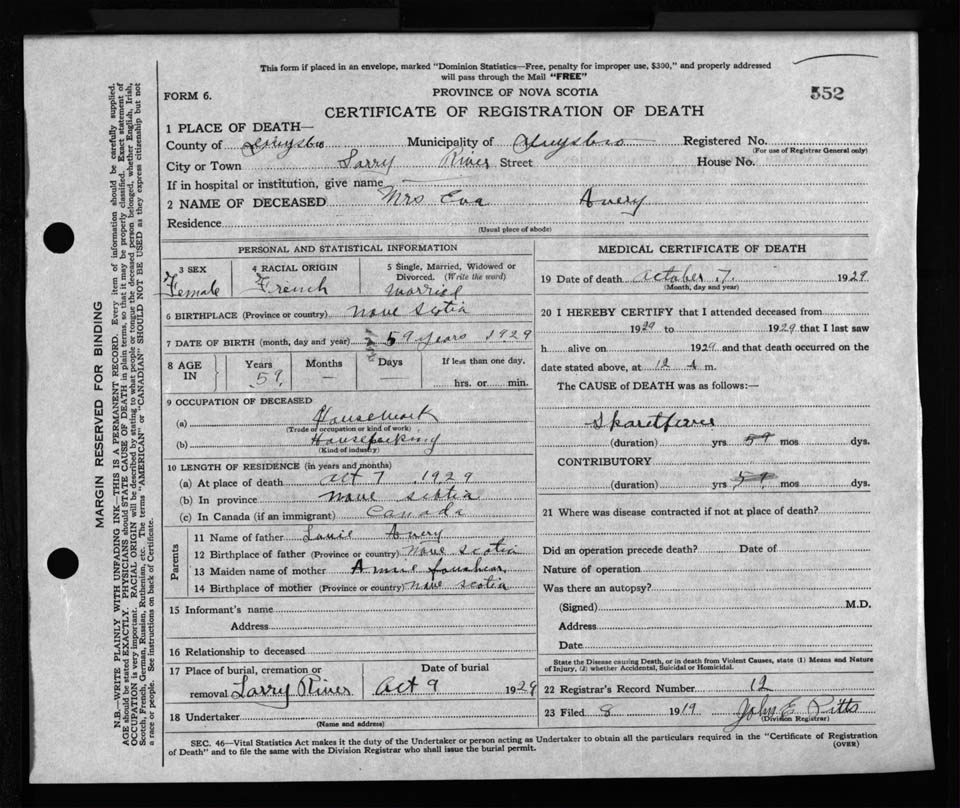 This form if placed in an envelope, marked "Dominion Statistics—Free, penalty for improper use, $300," and properly addressed
will pass through the Mail "FREE"
FORM 6.
PROVINCE OF NOVA SCOTIA
552
CERTIFICATE OF REGISTRATION OF DEATH
1 PLACE OF DEATH—
County of Guysbro Municipality of Guysbro Registered No.
(For use of Registrar General only)
City or Town Larry River Street House No.
If in hospital or institution, give name
2 NAME OF DECEASED Mrs Eva Avery
Residence
(Usual place of abode)
PERSONAL AND STATISTICAL INFORMATION
3 SEX
Female
4 RACIAL ORIGIN
French
5 Single, Married, Widowed or
Divorced. (Write the word)
Married
6 BIRTHPLACE (Province or country) Nove Scotia
7 DATE OF BIRTH (month, day and year) 59 years 1929
8 AGE IN
Years 59
Months —
Days —
If less than one day,
hrs. or min.
9 OCCUPATION OF DECEASED
(a) Housework
(Trade or occupation or kind of work)
(b)
(Kind of industry)
10 LENGTH OF RESIDENCE (in years and months)
(a) At place of death Oct 7 1929
(b) In province Nove Scotia
(c) In Canada (if an immigrant) Canada
Parents
11 Name of father Avery
12 Birthplace of father (Province or country) Nove Scotia
13 Maiden name of mother
14 Birthplace of mother (Province or country) Nove Scotia
15 Informant's name
Address
16 Relationship to deceased
17 Place of burial, cremation or
removal Larry River
Date of burial
Oct 9 1929
18 Undertaker
(Name and address)
MEDICAL CERTIFICATE OF DEATH
19 Date of death October 7. 1929
(Month, day and year)
20 I HEREBY CERTIFY that I attended deceased from
1929 to 1929 that I last saw
h alive on 1929 and that death occurred on the
date stated above, at 12 A m.
The CAUSE of DEATH was as follows:—
(duration) yrs 59 mos dys.
CONTRIBUTORY
(duration) yrs 59 mos dys.
21 Where was disease contracted if not at place of death?
Did an operation precede death? Date of
Nature of operation
Was there an autopsy?
(Signed) M.D.
Address
Date
State the Disease causing Death, or in death from Violent Causes, state (1) Means and Nature
of Injury, (2) whether Accidental, Suicidal or Homicidal.
22 Registrar's Record Number 12
23 Filed 8 1919 John E Pitts
(Division Registrar)
SEC. 46—Vital Statistics Act makes it the duty of the Undertaker or person acting as Undertaker to obtain all the particulars required in the "Certificate of Registration
of Death" and to file the same with the Division Registrar who shall issue the burial permit.
(OVER)
MARGIN RESERVED FOR BINDING
N.B.—WRITE PLAINLY WITH UNFADING INK—THIS IS A PERMANENT RECORD. Every item of information should be carefully supplied.
AGE should be stated EXACTLY. PHYSICIANS should STATE CAUSE OF DEATH in plain terms, so that it may be properly classified. Exact statement of
OCCUPATION is very important. RACIAL ORIGIN will be described by stating to what people or tongue the deceased person belonged, whether English, Irish,
Scotch, French, German, Russian, Ruthenian, etc. The terms "AMERICAN" or "CANADIAN" SHOULD NOT BE USED as they express citizenship but not
a race or people. See instructions on back of Certificate.